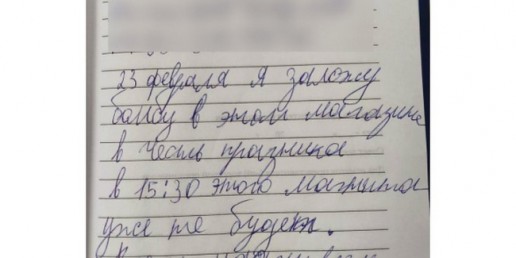 23 февраля я заложу
бомбу в этом магазине
в честь празника
в 15:30 этого магнита
уже не будет.